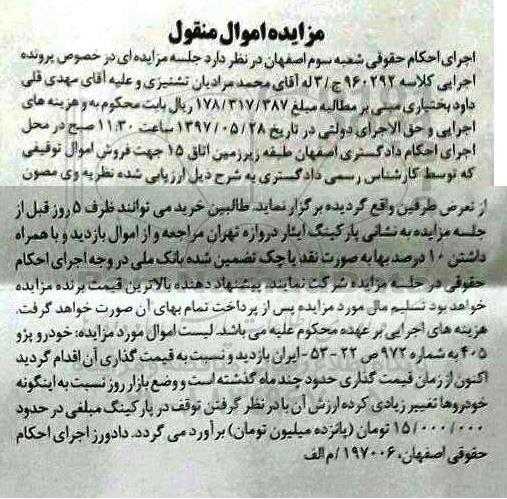 مزایده اموال منقول
اجرای احکام حقوقی شعبه سوم اصفهان در نظر دارد جلسه مزایده ای در خصوص پرونده
اجرایی کلاسه ۹۶۰۲۹۲ ج/۳ له آقای محمد مرادیان تشنیزی و علیه آقای مهدی قلی
داود بختیاری مبنی بر مطالبه مبلغ ۱۷۸/۳۱۷/۳۸۷ ریال بابت محکوم به و هزینه های
اجرایی و حق الاجرای دولتی در تاریخ ۱۳۹۷/۰۵/۲۸ ساعت ۱۱:۳۰ صبح در محل
اجرای احکام دادگستری اصفهان طبقه زیرزمین اتاق ۱۵ جهت فروش اموال توقیفی
که توسط کارشناس رسمی دادگستری به شرح ذیل ارزیابی شده نظریه وی مصون
از تعرض طرفین واقع گردیده برگزار نماید. طالبین خرید می توانند ظرف ۵ روز قبل از
جلسه مزایده به نشانی پارکینگ ایثار دروازه تهران مراجعه و از اموال بازدید و با همراه
داشتن ۱۰ درصد بها به صورت نقد یا چک تضمین شده بانک ملی در وجه اجرای احکام
حقوقی در جلسه مزایده شرکت نمایند. پیشنهاد دهنده بالاترین قیمت برنده مزایده
خواهد بود تسلیم مال مورد مزایده پس از پرداخت تمام بهای آن صورت خواهد گرفت.
هزینه های اجرایی بر عهده محکوم علیه می باشد. لیست اموال مورد مزایده: خودرو پژو
۴۰۵ به شماره ۹۷۲ ص ۲۲ - ۵۳ - ایران بازدید و نسبت به قیمت گذاری آن اقدام گردید
اکنون از زمان قیمت گذاری حدود چند ماه گذشته است و وضع بازار روز نسبت به اینگونه
خودروها تغییر زیادی کرده ارزش آن با در نظر گرفتن توقف در پارکینگ مبلغی در حدود
۱۵/۰۰۰/۰۰۰ تومان (پانزده میلیون تومان) برآورد می گردد. دادورز اجرای احکام
حقوقی اصفهان، ۱۹۷۰۰۶/م الف